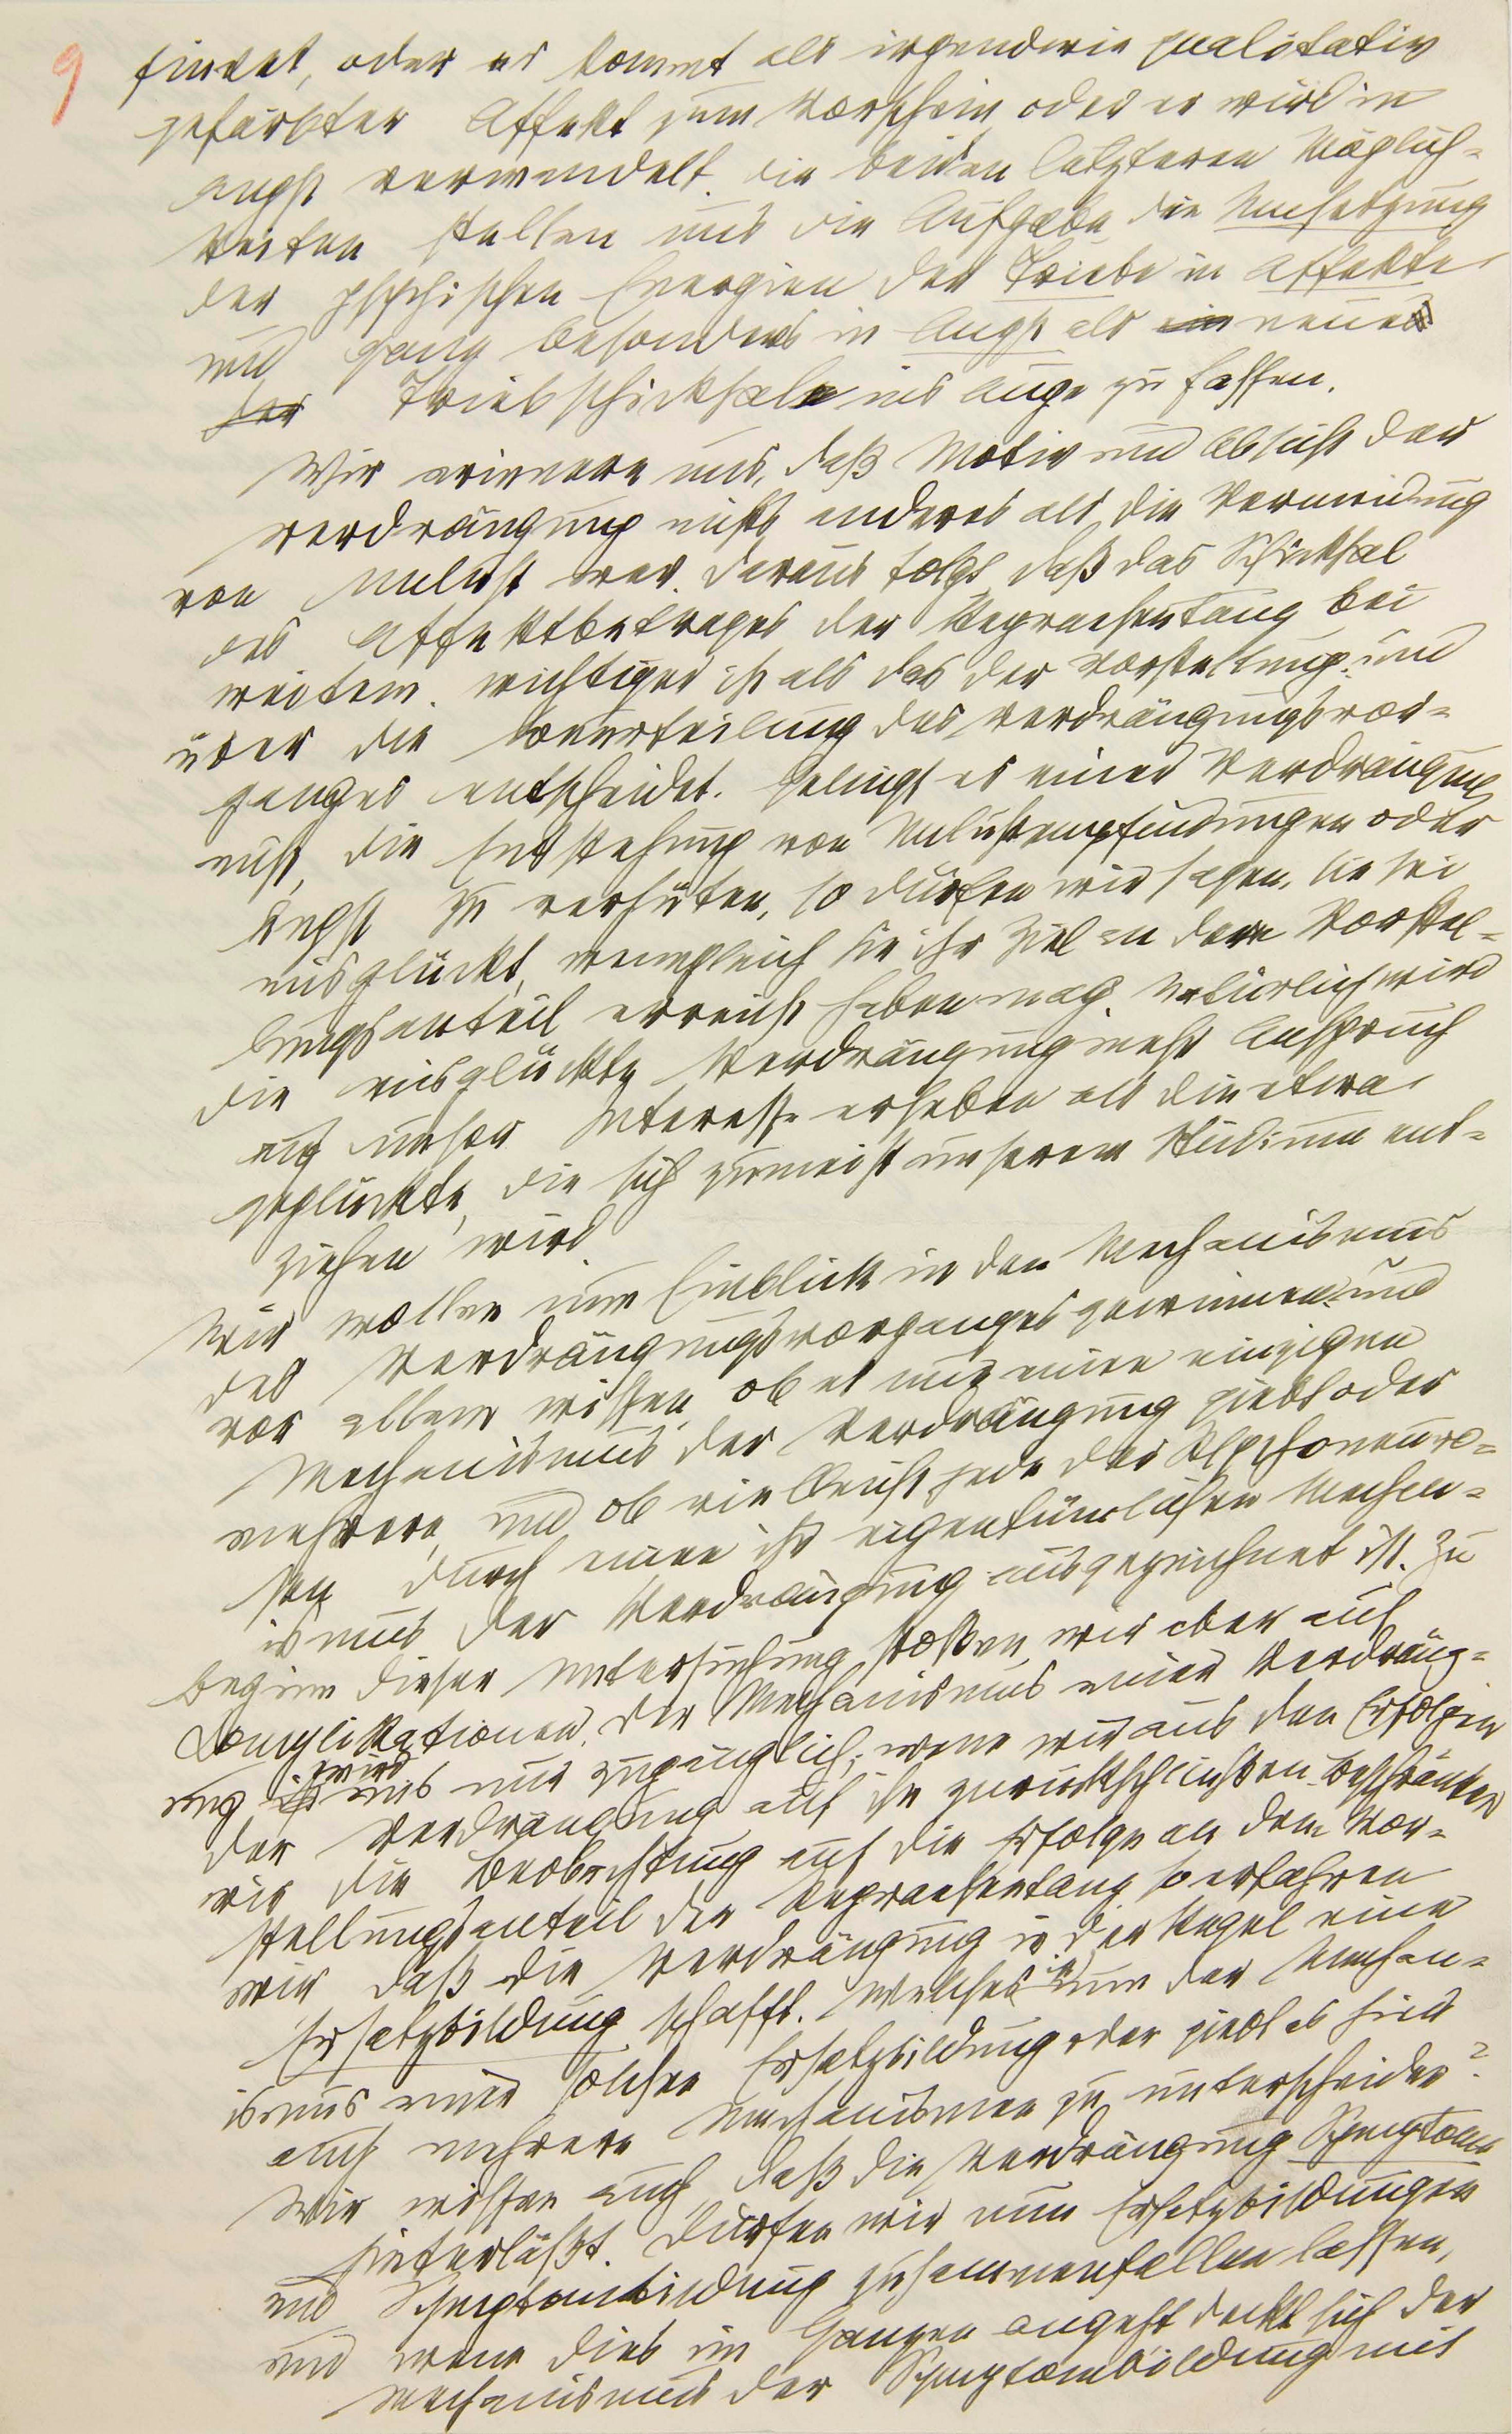 9
findet, oder er kommt als irgendwie qualitativ
gefärbter Affekt zum Vorschein oder er wird in
Angst verwandelt. Die beiden letzteren Möglich=
keiten stellen uns die Aufgabe, die Umsetzung
der psychischen Energien der Triebe in Affekte
und ganz besonders in Angst als ein neues
der Triebschicksale ins Auge zu fassen.
Wir erinnern uns, daß Motiv und Absicht der
Verdrängung nichts anderes als die Vermeidung
von Unlust war. Daraus folgt, daß das Schicksal
des Affektbetrages der Repraesentanz bei
weitem wichtiger ist als das der Vorstellung und
über die Beurteilung des Verdrängungsvor=
ganges entscheidet. Gelingt es einer Verdrängung
nicht, die Entstehung von Unlustempfindungen oder
Angst zu verhüten, so dürfen wir sagen, sie sei
misglückt, wenngleich sie ihr Ziel an dem Vorstel=
lungsanteil erreicht haben mag. Natürlich wird
die misglückte Verdrängung mehr Anspruch
auf unser Interesse erheben als die etwa
geglückte, die sich zumeist unserem Studium ent=
ziehen wird
Wir wollen nun Einblick in den Mechanismus
des Verdrängungsvorganges gewinnen und
vor allem wissen, ob es nur einen einzigen
Mechanismus der Verdrängung giebt oder
mehrere, und ob vielleicht jede der Psychoneuro=
sen durch einen ihr eigentümlichen Mechan=
ismus der Verdrängung ausgezeichnet ist. Zu
Beginn dieser Untersuchung stoßen wir aber auf
Complikationen. Der Mechanismus einer Verdräng=
ung ist wird uns nur zugänglich, wenn wir aus den Erfolgen
der Verdrängung auf ihn zurückschließen. Beschränken
wir die Beobachtung auf die Erfolge an dem Vor=
stellungsanteil der Repraesentanz so erfahren
wir daß die Verdrängung in der Regel eine
Ersatzbildung schafft. Welches ist nun der Mechan=
ismus einer solchen Ersatzbildung oder giebt es hier
auch mehrere Mechanismen zu unterscheiden?
Wir wissen auch daß die Verdrängung Symptome
hinterläßt. Dürfen wir nun Ersatzbildungen
und Symptombildung zusammenfallen lassen,
und wenn dies im Ganzen angeht deckt sich der
Mechanismus der Symptombildung mit